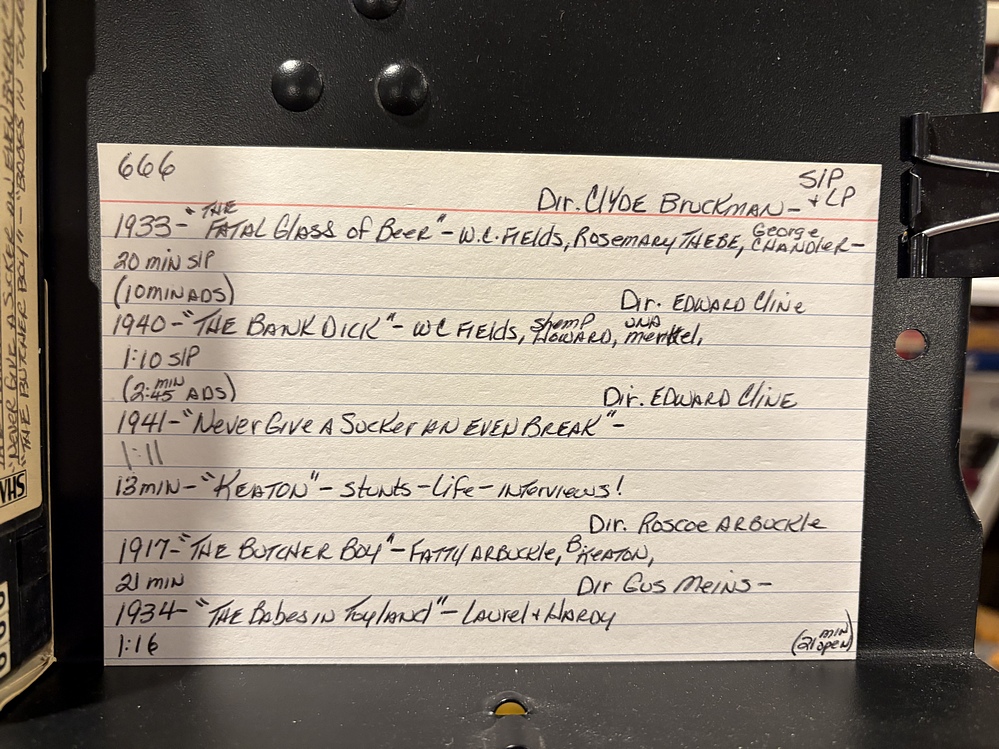 "NEVER GIVE A SUCKER AN EVEN BREAK"
"THE BUTCHER BOY" - "BABES IN TOYLAND
VHS
666
SLP
+ LP
Dir. CLYDE BRUCKMAN -
1933 - "THE FATAL Glass of Beer" - W.C. FIELDS, Rosemary THEBE, George CHANDLER -
20 min SLP
(10 MIN ADS)
Dir. EDWARD Cline
1940 - "THE BANK DICK" - WC Fields, Shemp HOWARD, UNA merkel,
1:10 SLP
(2:45 min ADS)
Dir. EDWARD CLINE
1941 - "Never Give A Sucker AN EVEN BREAK" -
1:11
13 min - "KEATON" - Stunts - Life - Interviews!
Dir. Roscoe ARBUCKle
1917 - "THE BUTCHER BOY" - FATTY ARBUCKLE, B. KEATON,
21 min
Dir Gus Meins -
1934 - "The Babes in Toyland" - Laurel + HARDY
1:16
(21 min open)